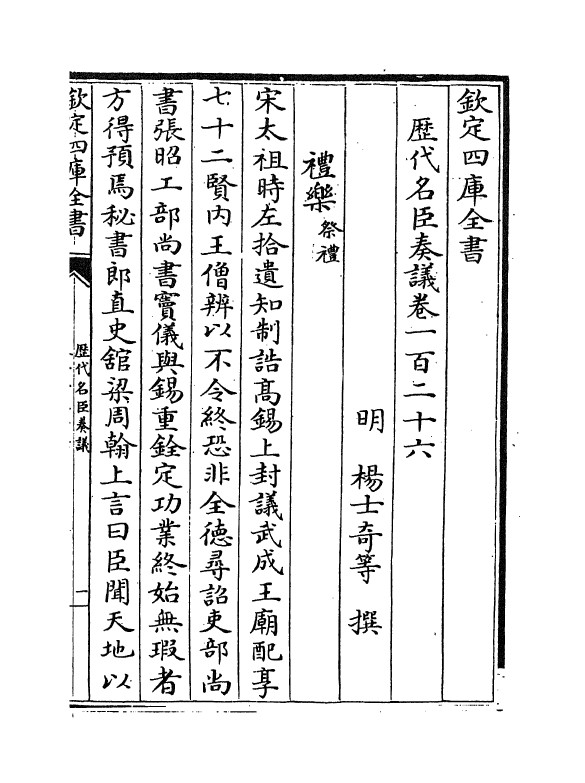 欽定四庫全書
歷代名臣奏議卷一百二十六
明 楊士奇等 撰
禮樂祭禮
宋太祖時左拾遺知制誥髙錫上封議武成王廟配享
七十二賢内王僧辨以不令終恐非全德尋詔吏部尚
書張昭工部尚書竇儀與錫重銓定功業終始無瑕者
方得預焉秘書郎直史舘梁周翰上言曰臣聞天地以
欽定四庫全書
歷代名臣奏議
一